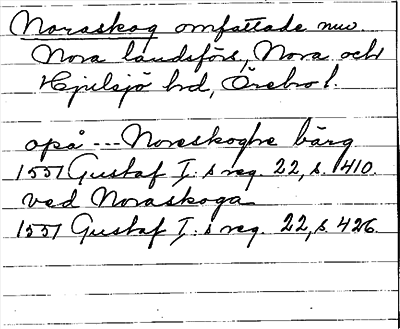 Noraskog omfattade nuv.
Nora landsförs, Nora och
Hjulsjö hd, Örebro l.
opå --- Noreskoghe bärg
1551 Gustaf I:s reg. 22, s. 410.
ved Noraskoga
1551 Gustaf I:s reg. 22, s. 426.